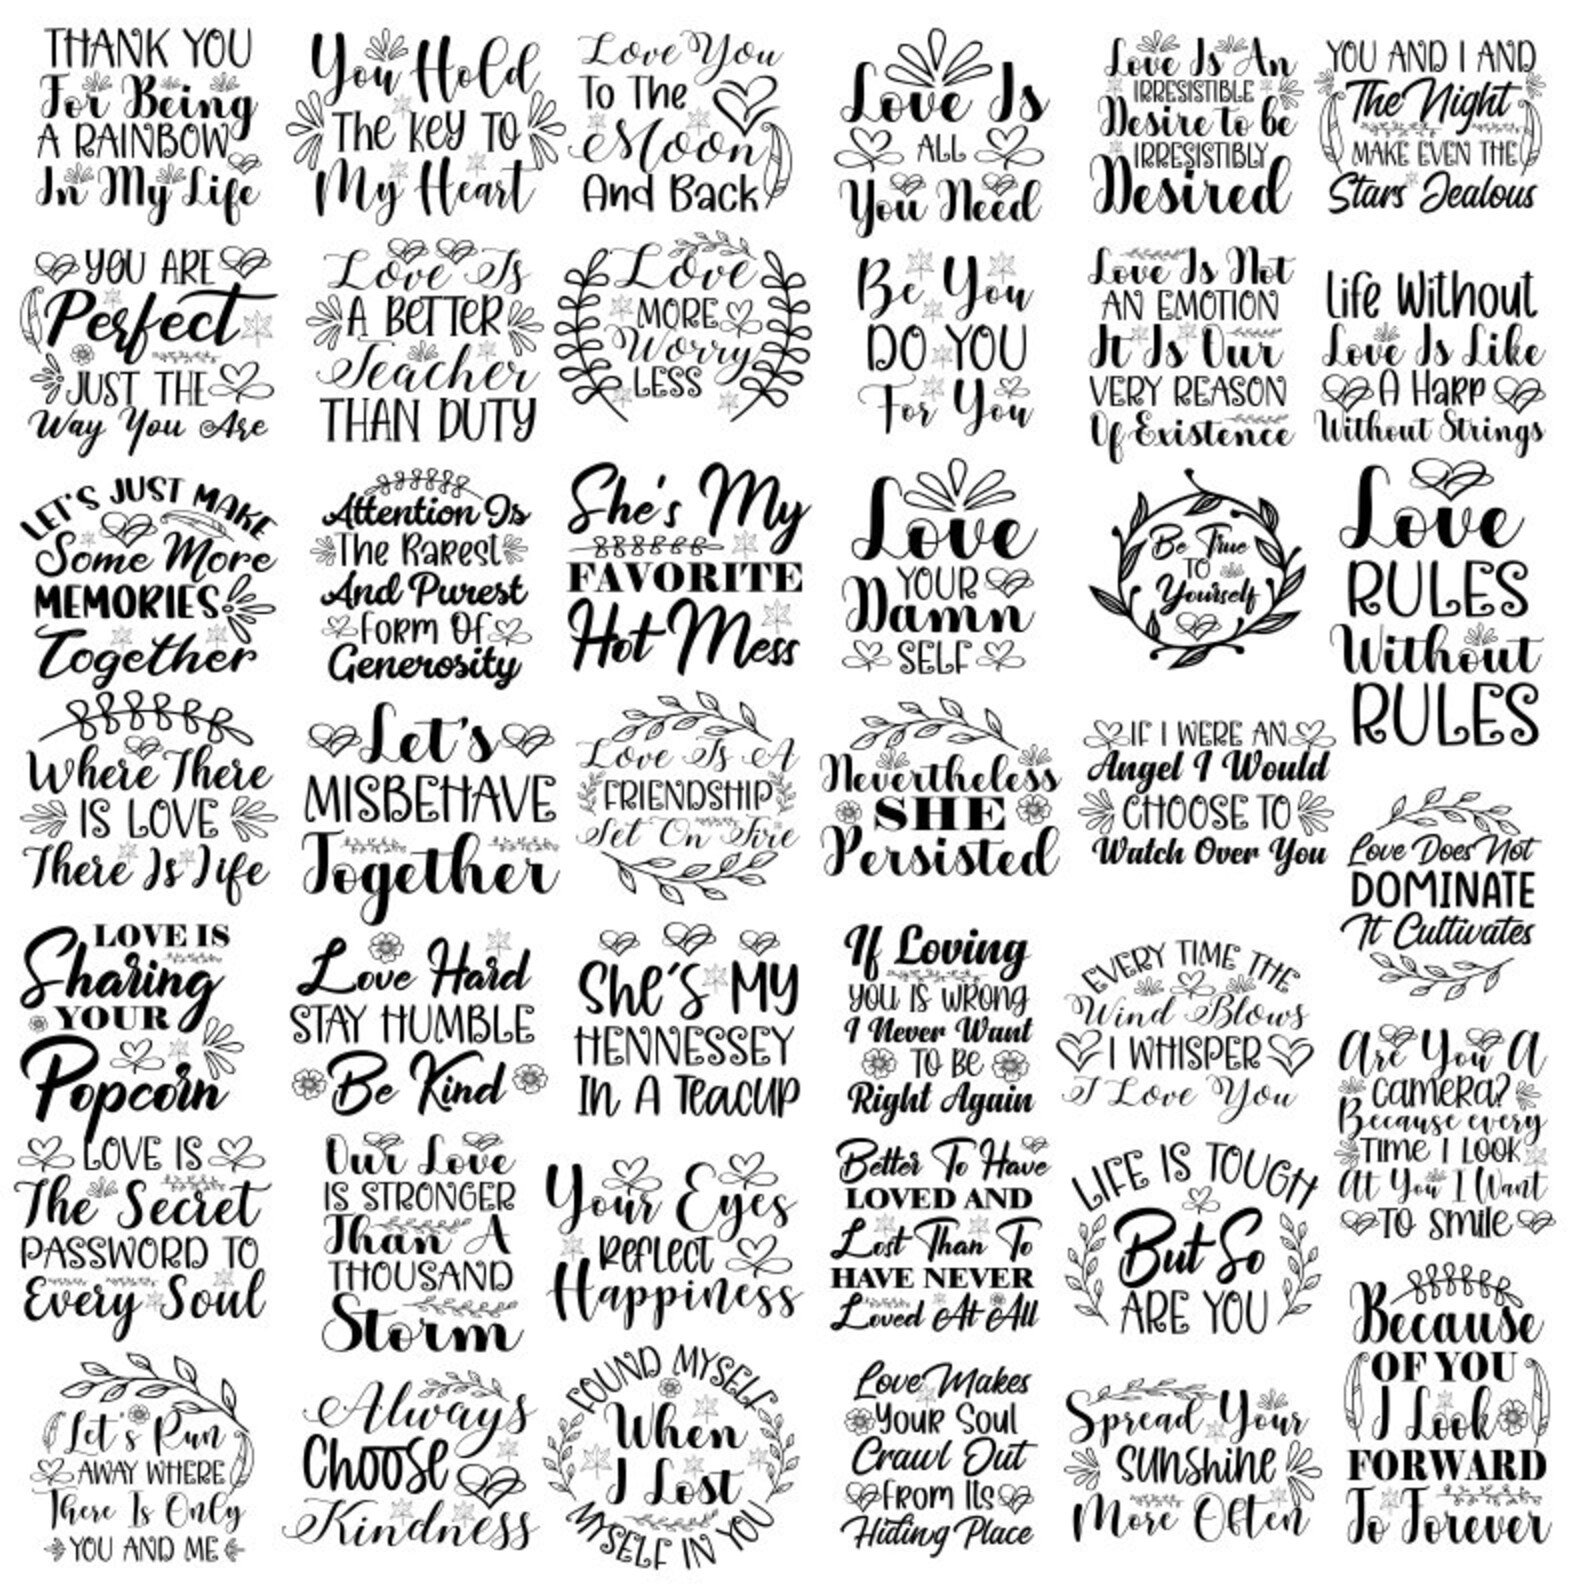 THANK YOU
For Being
A RAINBOW
In My Life
You Hold
THE KEY TO
My Heart
Love You
To The
Moon
And Back
Love Is
ALL
You Need
Love Is An
IRRESISTIBLE
Desire to be
IRRESISTIBLY
Desired
YOU AND I AND
The Night
MAKE EVEN THE
Stars Jealous
YOU ARE
Perfect
JUST THE
Way You Are
Love Is
A BETTER
Teacher
THAN DUTY
Love
MORE
Worry
LESS
Be You
DO YOU
For You
Love Is Not
AN EMOTION
It Is Our
VERY REASON
Of Existence
Life Without
Love Is Like
A Harp
Without Strings
LET'S JUST MAKE
Some More
MEMORIES
Together
Attention Is
The Rarest
And Purest
Form Of
Generosity
She's My
FAVORITE
Hot Mess
Love
YOUR
Damn
SELF
Be True
TO
Yourself
Love
RULES
Without
RULES
Where There
IS LOVE
There Is Life
Let's
MISBEHAVE
Together
Love Is A
FRIENDSHIP
Set On Fire
Nevertheless
SHE
Persisted
IF I WERE AN
Angel I Would
CHOOSE TO
Watch Over You
Love Does Not
DOMINATE
It Cultivates
LOVE IS
Sharing
YOUR
Popcorn
Love Hard
STAY HUMBLE
Be Kind
She's MY
HENNESSEY
In A Teacup
If Loving
YOU IS WRONG
I Never Want
TO BE
Right Again
EVERY TIME THE
Wind Blows
I WHISPER
I Love You
Are You A
CAMERA?
Because every
TIME I LOOK
At You I Want
TO SMILE
LOVE IS
The Secret
PASSWORD TO
Every Soul
Our Love
IS STRONGER
Than A
THOUSAND
Storm
Your Eyes
REFLECT
Happiness
Better To Have
LOVED AND
Lost Than To
HAVE NEVER
Loved At All
LIFE IS TOUGH
But So
ARE YOU
Because
OF YOU
I Look
FORWARD
To Forever
Let's Run
AWAY WHERE
There Is Only
YOU AND ME
Always
Choose
Kindness
FOUND MYSELF
When
I Lost
MYSELF IN YOU
Love Makes
Your Soul
Crawl Out
From Its
Hiding Place
Spread Your
Sunshine
More Often